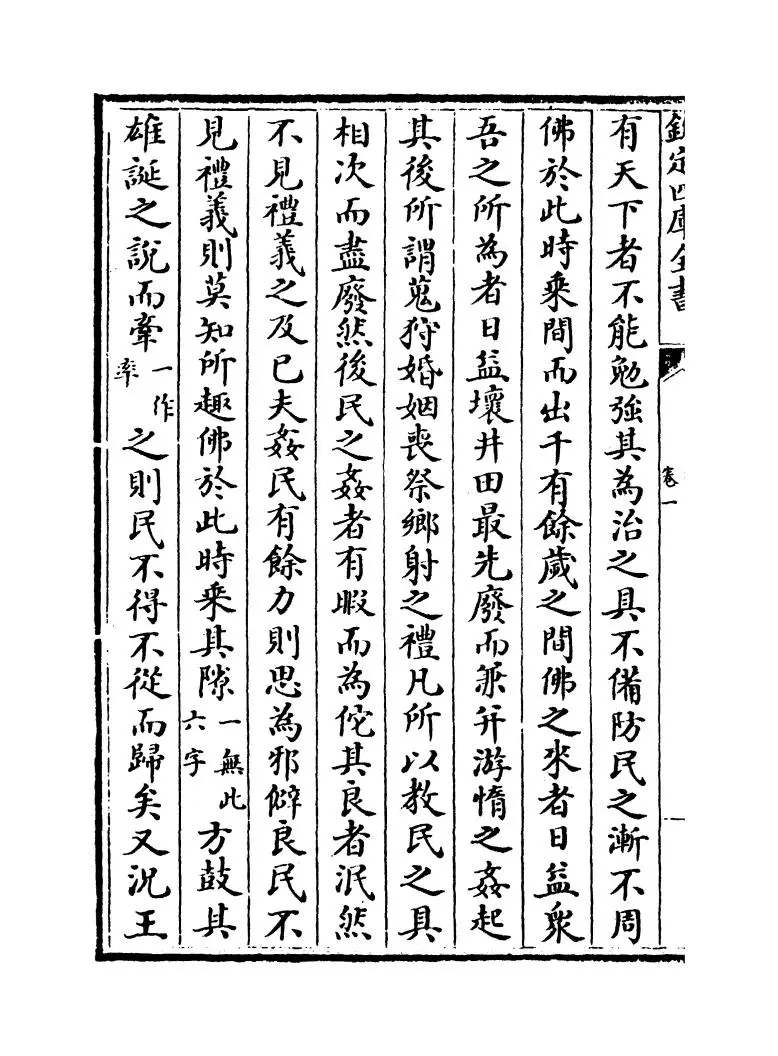 欽定四庫全書
卷一
有天下者不能勉強其為治之具不備防民之漸不周
佛於此時乗間而出千有餘歲之間佛之來者日益衆
吾之所為者日益壞井田最先廢而兼并游惰之姦起
其後所謂蒐狩婚姻喪祭鄉射之禮凡所以教民之具
相次而盡廢然後民之姦者有暇而為佗其良者泯然
不見禮義之及已夫姦民有餘力則思為邪僻良民不
見禮義則莫知所趣佛於此時乗其隙一無此六字方鼓其
雄誕之說而牽一作率之則民不得不從而歸矣又況王